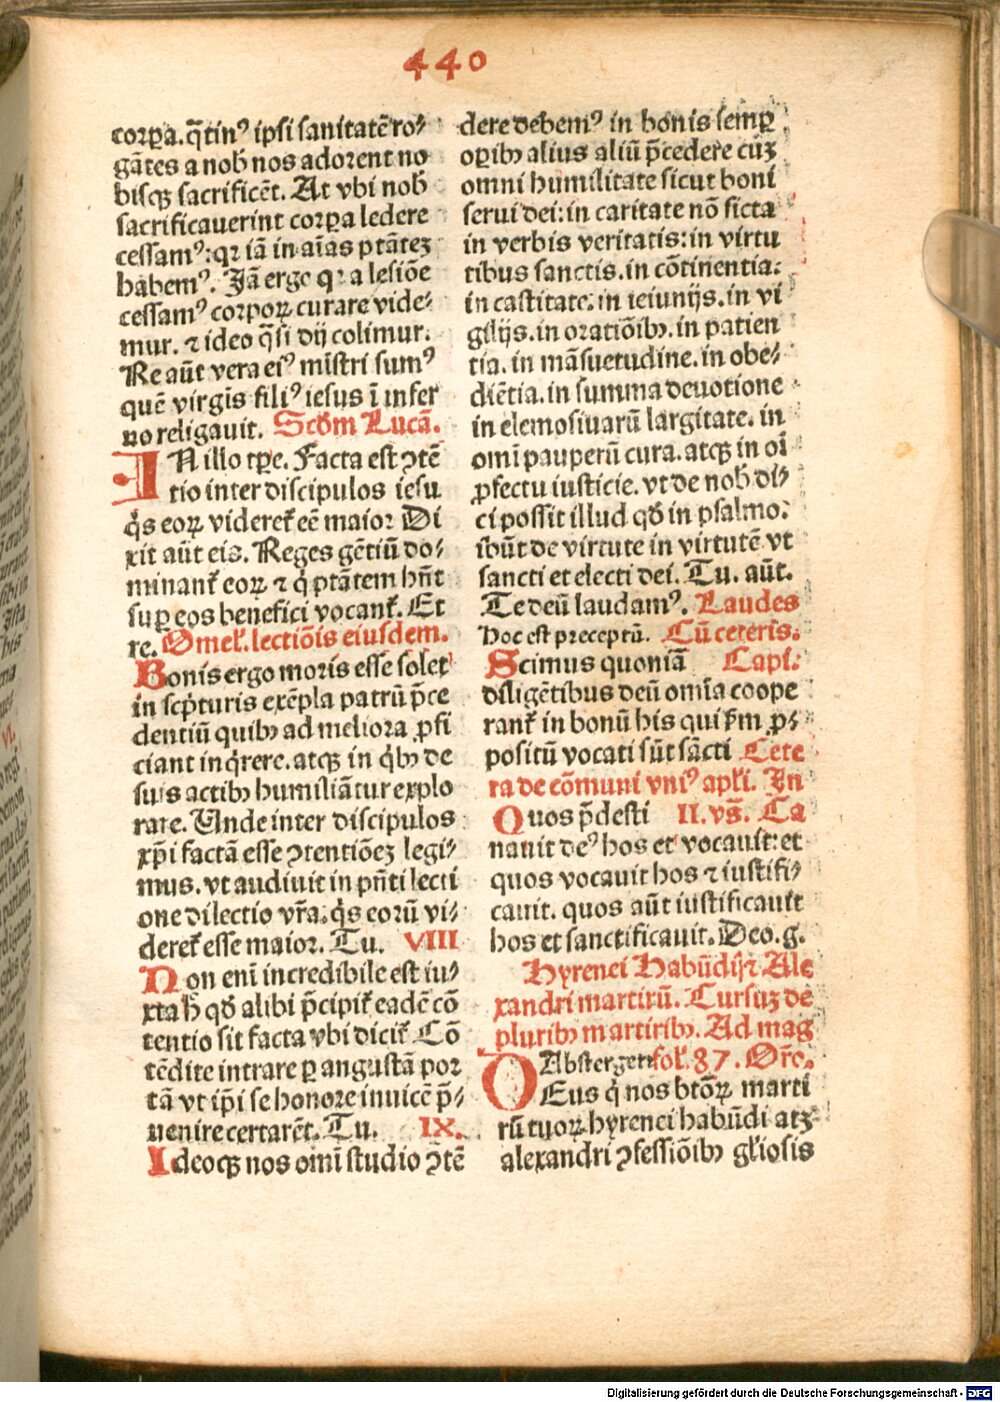 440
corꝑa.q̄tin⁹ ipsi sanitatē ro⸗
gātes a nob̄ nos adorent no
bisqꝫ sacrificēt. At vbi nob̄
sacrificauerint corꝑa ledere
cessam⁹:qꝛ iā in aīas ptāteꝫ
habem⁹. Jā ergo qꝛ a lesiōe
cessam⁹ corpoꝝ curare vide⸗
mur. ⁊ ideo q̄si dij colimur.
Re aūt vera ei⁹ mīstri sum⁹
quē virgīs fili⁹ iesus ī infer
no religauit. Scd̄m Lucā.
IN illo tꝑe. Facta est ꝯtē
tio inter discipulos iesu
q̇s eoꝝ videret̄ eē maioꝛ Di
xit aūt eis. Reges gētiū do⸗
minant̄ eoꝝ ⁊ q̇ ptātem hn̄t
suꝑ eos benefici vocant̄. Et
re. Omel̄. lectiōis eiusdem.
Bonis ergo moris esse solet
in scp̄turis exēpla patrū p̄ce
dentiū quibꝫ ad meliora ꝓfi
ciant inq̇rere. atqꝫ in q̇bꝫ de
suis actibꝫ humiliātur explo
rare. Unde inter discipulos
xp̄i factā esse ꝯtentiōeꝫ legi⸗
mus. vt audiuit in pn̄ti lecti
one dilectio vr̄a. q̇s eorū vi⸗
deret̄ esse maior. Tu. VIII
Non enī incredibile est iu⸗
xta h̄ qd̄ alibi p̄cipit̄ eadē cō
tentio sit facta vbi dicit̄ Cō
tēdite intrare ꝑ angustā por
tā vt ip̄i se honore inuicē p̄⸗
uenire certarēt. Tu. IX.
Ideoqꝫ nos omī studio ꝯtē
dere debem⁹ in bonis sempꝑ
oꝑibꝫ alius aliū p̄cedere cūꝫ
omni humilitate sicut boni
serui dei: in caritate nō ficta
in verbis veritatis: in virtu
tibus sanctis. in cōtinentia:
in castitate: in ieiunijs. in vi
gilijs. in oratiōibꝫ. in patien
tia. in māsuetudine. in obe⸗
diētia. in summa deuotione
in elemosiuarū largitate. in
omī pauperū cura. atqꝫ in oī
ꝓfectu iusticie. vt de nob̄ di⸗
ci possit illud qd̄ in psalmo:
ibūt de virtute in virtutē vt
sancti et electi dei. Tu. aūt.
Te deū laudam⁹. Laudes
Hoc est preceptū. Cū ceteris.
Scimus quoniā Capl̄:
diligētibus deū omīa coope
rant̄ in bonū his qui fm̄ ꝓ⸗
positū vocati sūt sācti Cete
ra de cōmuni vni⁹ apl̄i. In
Quos p̄desti II. vs̄. Ca
nauit de⁹ hos et vocauit: et
quos vocauit hos ⁊ iustifi⸗
cauit. quos aūt iustificauit
hos et sanctificauit. Deo. g.
Hyrenei Habūdij ⁊ Ale
xandri martirū. Cursuꝫ de
pluribꝫ martiribꝫ. Ad mag
Absterget fol̄. 87. Or̄o.
DEus q̇ nos btōꝝ marti
rū tuoꝝ hyrenei habūdi atꝫ
alexandri ꝯfessiōibꝫ gl̄iosis
Digitalisierung gefördert durch die Deutsche Forschungsgemeinschaft - DFG